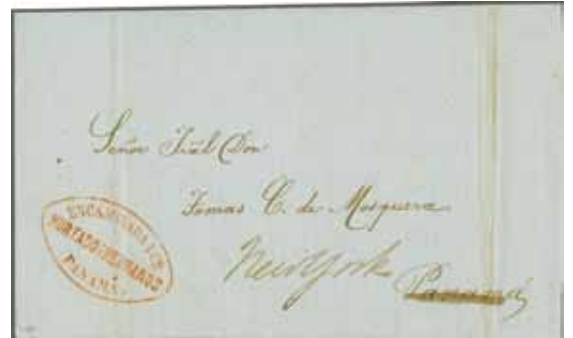 Señor Jral Don
Tomas C. de Mosquera
New York
Panamá
ENCAMINADA POR
HURTADO HERMANOS
PANAMÁ